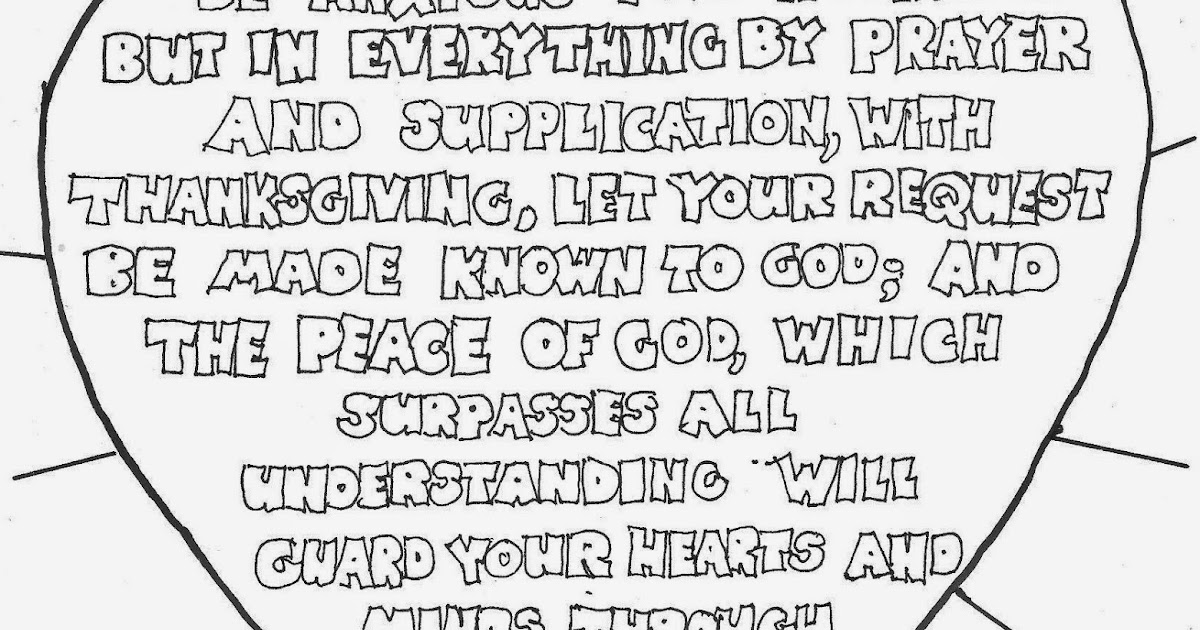 BE ANXIOUS FOR
BUT IN EVERYTHING BY PRAYER
AND SUPPLICATION, WITH
THANKSGIVING, LET YOUR REQUEST
BE MADE KNOWN TO GOD; AND
THE PEACE OF GOD, WHICH
SURPASSES ALL
UNDERSTANDING WILL
GUARD YOUR HEARTS AND
MINDS THROUGH